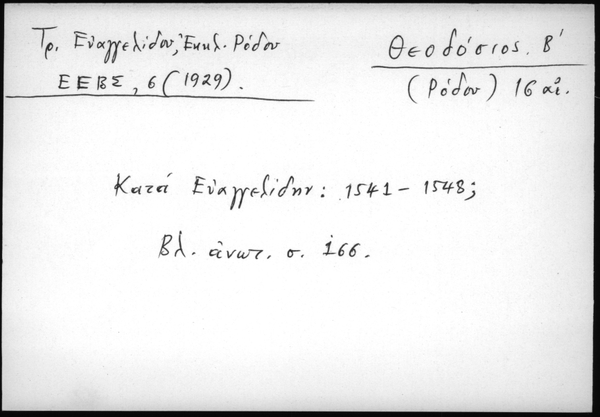 Τρ. Εὐαγγελίδου, Ἐκκλ. Ρόδου
ΕΕΒΣ, 6 (1929).
Θεοδόσιος Β´
(Ρόδου) 16 αἰ.
Κατά Εὐαγγελίδην: 1541 – 1548;
Βλ. ἀνωτ. σ. 166.